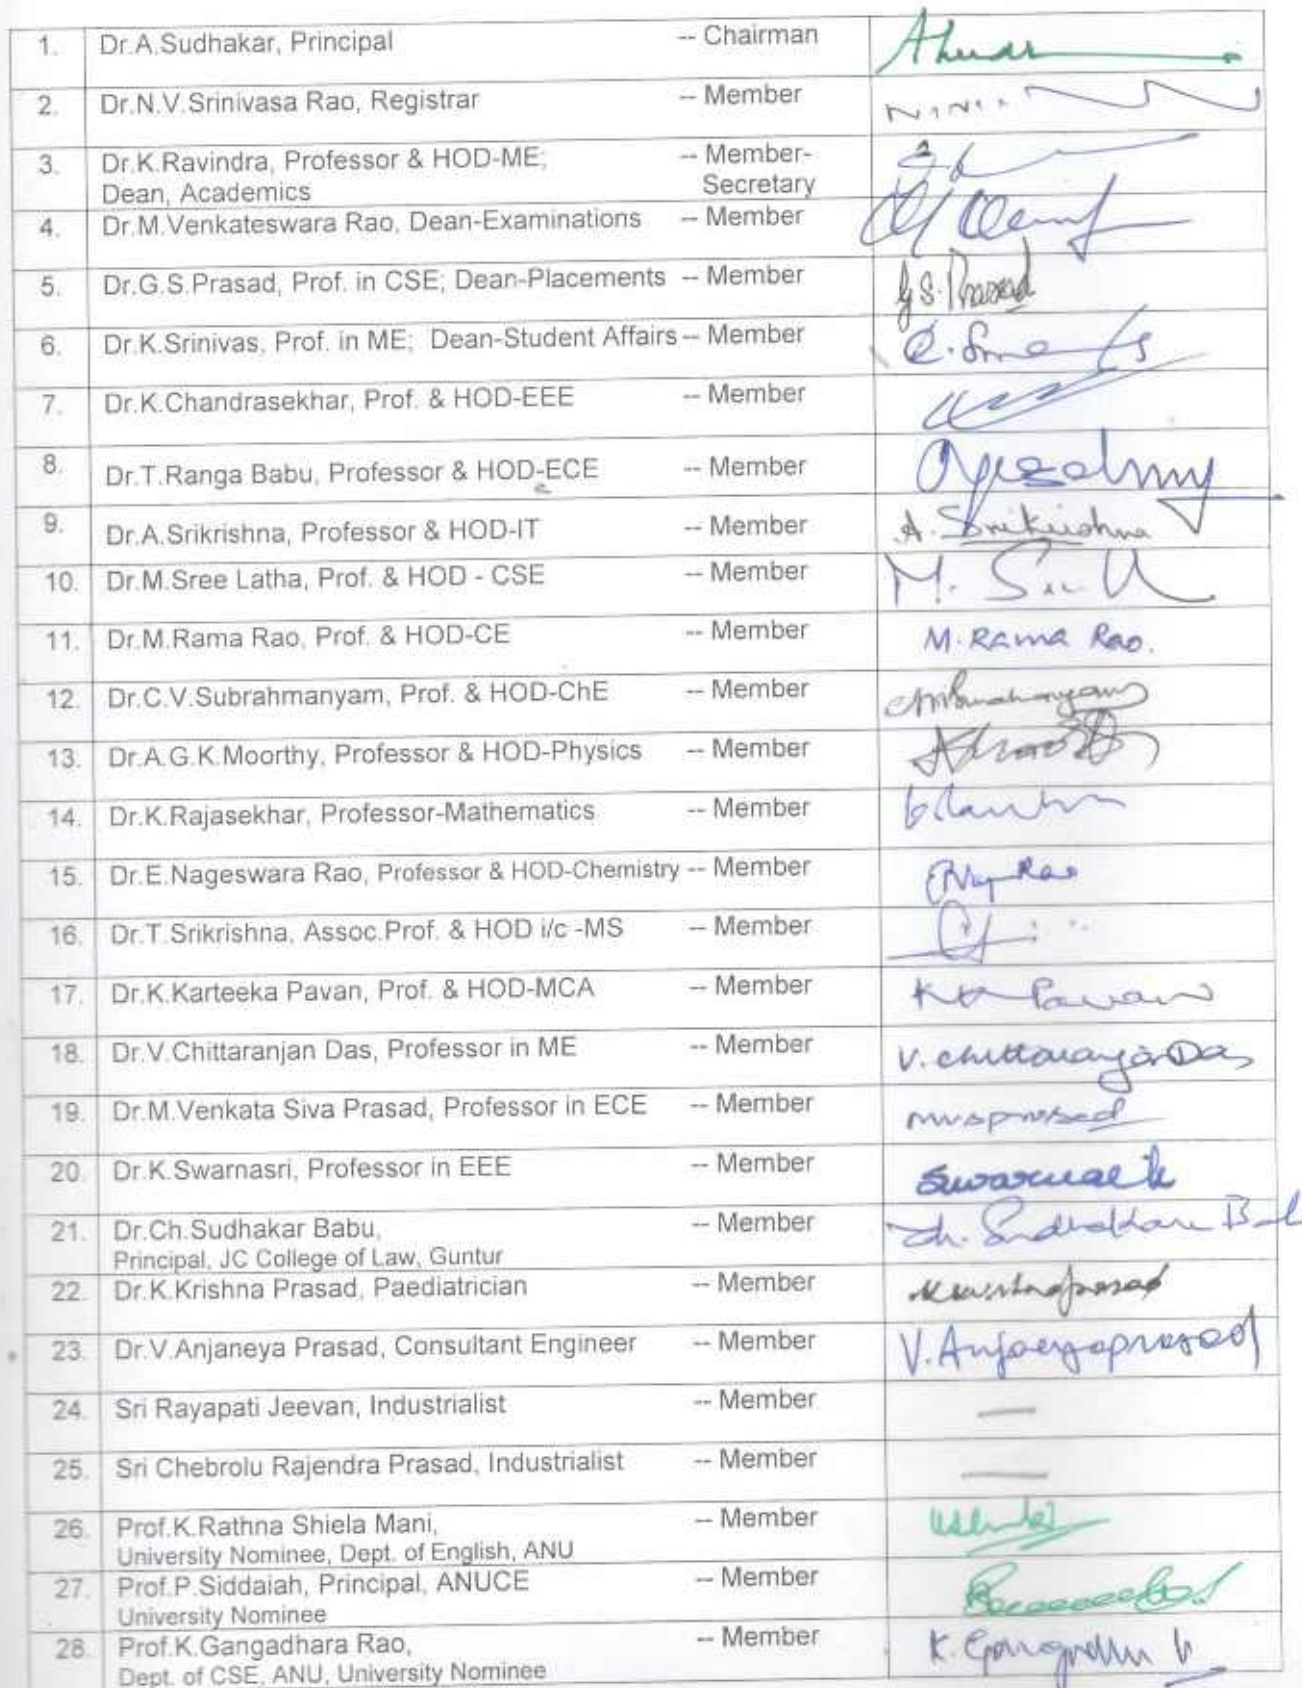 1. Dr.A.Sudhakar, Principal -- Chairman
2. Dr.N.V.Srinivasa Rao, Registrar -- Member
3. Dr.K.Ravindra, Professor & HOD-ME; -- Member-
Dean, Academics Secretary
4. Dr.M.Venkateswara Rao, Dean-Examinations -- Member
5. Dr.G.S.Prasad, Prof. in CSE; Dean-Placements -- Member G S. Prasad
6. Dr.K.Srinivas, Prof. in ME; Dean-Student Affairs -- Member
7. Dr.K.Chandrasekhar, Prof. & HOD-EEE -- Member
8. Dr.T.Ranga Babu, Professor & HOD-ECE -- Member
9. Dr.A.Srikrishna, Professor & HOD-IT -- Member A. Srikrishna
10. Dr.M.Sree Latha, Prof. & HOD - CSE -- Member
11. Dr.M.Rama Rao, Prof. & HOD-CE -- Member M. Rama Rao.
12. Dr.C.V.Subrahmanyam, Prof. & HOD-ChE -- Member
13. Dr.A.G.K.Moorthy, Professor & HOD-Physics -- Member
14. Dr.K.Rajasekhar, Professor-Mathematics -- Member
15. Dr.E.Nageswara Rao, Professor & HOD-Chemistry -- Member
16. Dr.T.Srikrishna, Assoc.Prof. & HOD i/c -MS -- Member
17. Dr.K.Karteeka Pavan, Prof. & HOD-MCA -- Member KK Pavan
18. Dr.V.Chittaranjan Das, Professor in ME -- Member V. Chittaranjan Das
19. Dr.M.Venkata Siva Prasad, Professor in ECE -- Member mvsprasad
20. Dr.K.Swarnasri, Professor in EEE -- Member
21. Dr.Ch.Sudhakar Babu, -- Member Ch. Sudhakar
Principal, JC College of Law, Guntur
22. Dr.K.Krishna Prasad, Paediatrician -- Member
23. Dr.V.Anjaneya Prasad, Consultant Engineer -- Member V. Anjaneyaprasad
24. Sri Rayapati Jeevan, Industrialist -- Member —
25. Sri Chebrolu Rajendra Prasad, Industrialist -- Member —
26. Prof.K.Rathna Shiela Mani, -- Member
University Nominee, Dept. of English, ANU
27. Prof.P.Siddaiah, Principal, ANUCE -- Member
University Nominee
28. Prof.K.Gangadhara Rao, -- Member
Dept. of CSE, ANU, University Nominee